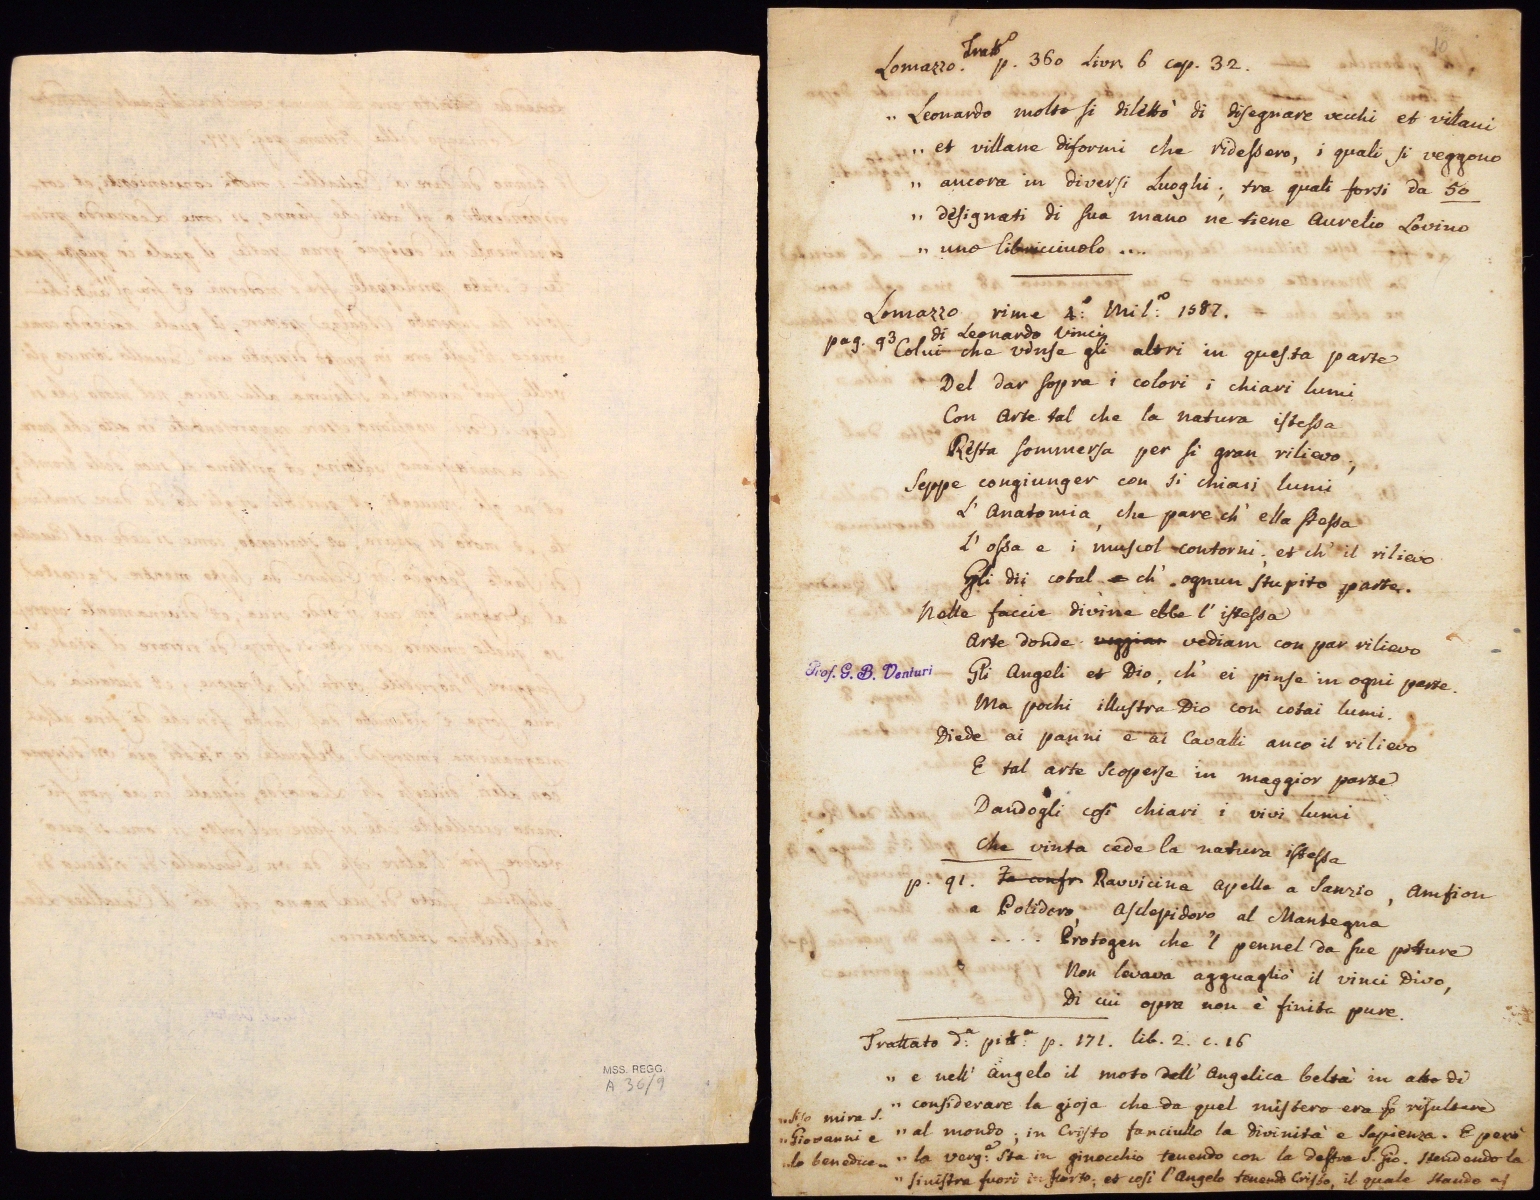 MSS. REGG.
A 36/9
10
Lomazzo. Tratt.o p. 360 Livr. 6 cap. 32.
" Leonardo molto si dilettò di disegnare vecchi et villani
" et villane diformi che ridessero, i quali si veggono
" ancora in diversi Luoghi; tra quali forsi da 50
" designati di sua mano ne tiene Aurelio Lovino
" uno libricciuolo ....
Lomazzo rime 4.o Mil.o 1587.
pag. 93 di Leonardo Vinci
Colui che vinse gli altri in questa parte
Del dar sopra i colori i chiari lumi
Con Arte tal che la natura istessa
Resta sommersa per si gran rilievo;
Seppe congiunger con si chiari lumi
L' Anatomia, che pare ch' ella stessa
L' ossa e i muscol contorni; et ch' il rilievo
Gli dii cotal ch' ognun stupito parte.
Nelle faccie divine ebbe l' istessa
Arte donde veggiam vediam con par rilievo
Prof. G. B. Venturi
Gli Angeli et Dio, ch' ei pinse in ogni parte.
Ma pochi illustra Dio con cotai lumi.
Diede ai panni e ai Cavalli anco il rilievo
E tal arte scoperse in maggior parte
Dandogli così chiari i vivi lumi
Che vinta cede la natura istessa
p. 91. Ravvicina Apelle a Sanzio, Amfion
a Polidoro, Asclepidoro al Mantegna
.... Protogen che 'l pennel da sue pitture
Non levava agguagliò il vinci Divo,
Di cui opra non è finita pure.
Trattato d.a pitt.a p. 171. lib. 2. c. 16
" e nell' Angelo il moto dell' Angelica beltà in atto di
" considerare la gioja che da quel mistero era p risultare
" al mondo; in Cristo fanciullo la divinità e sapienza. E però
" la verg.e sta in ginocchio tenendo con la destra S. Gio. stendendo la
" sinistra fuori in scorto; et così l'Angelo tenendo Cristo, il quale stando as
" siso mira S.
" Giovanni e
" lo benedice "